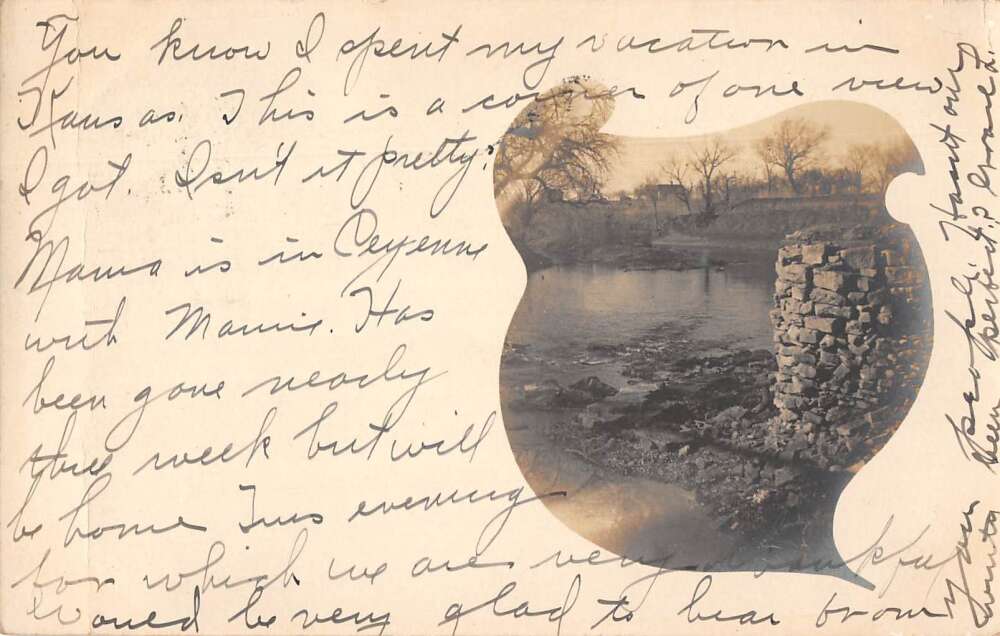 You know I spent my vacation in
Kansas. This is a corner of one view
I got. Isn't it pretty?
Mama is in Ceyenne
with Mamie. Has
been gone nearly
three week but will
be home Tues evening
for which we are very
Would be very glad to hear from
your people. Hasn't our
been perfect?